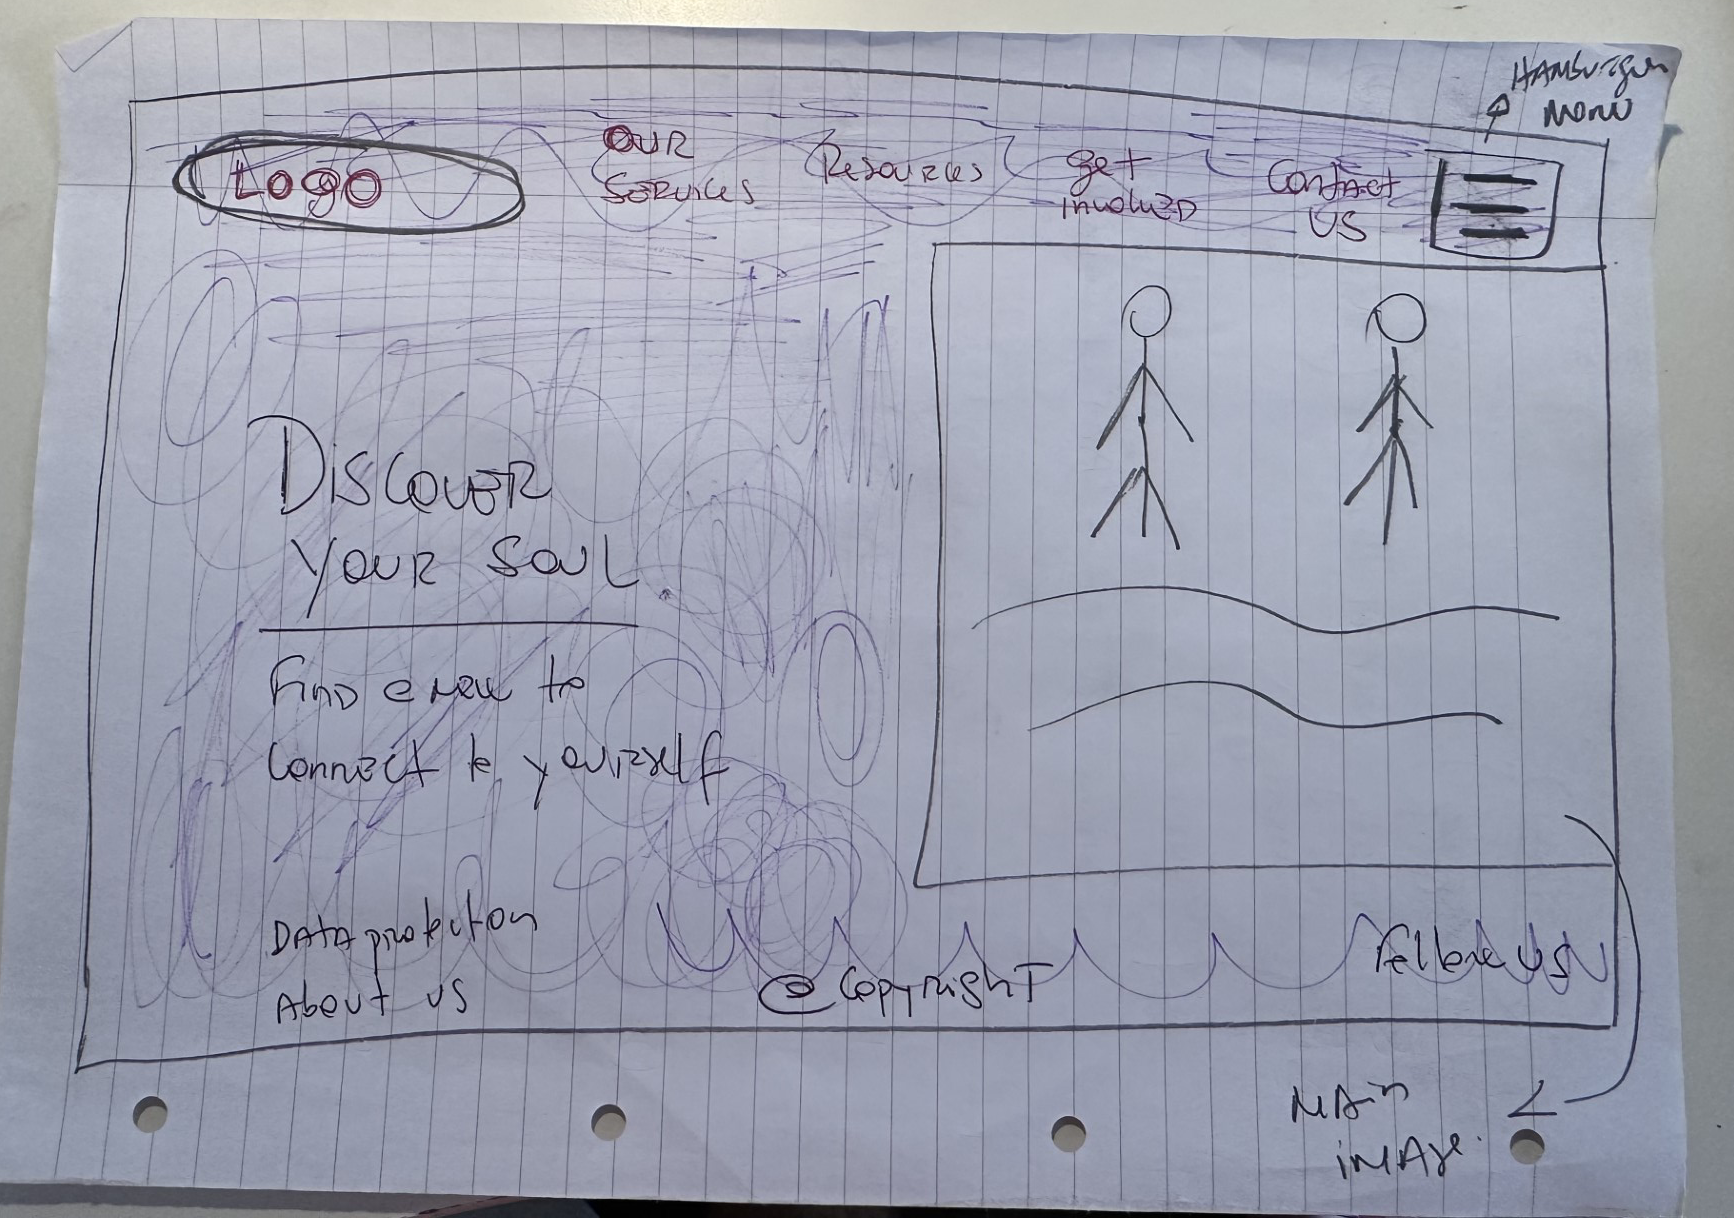 HAMBURGER
MENU
LOGO
OUR
SERVICES
Resources
get
involved
Contact
US
DISCOVER
YOUR SOUL.
FIND a new to
Connect to yourself
DATA protection
About us
© Copyright
Follow us
MAIN
IMAGE.